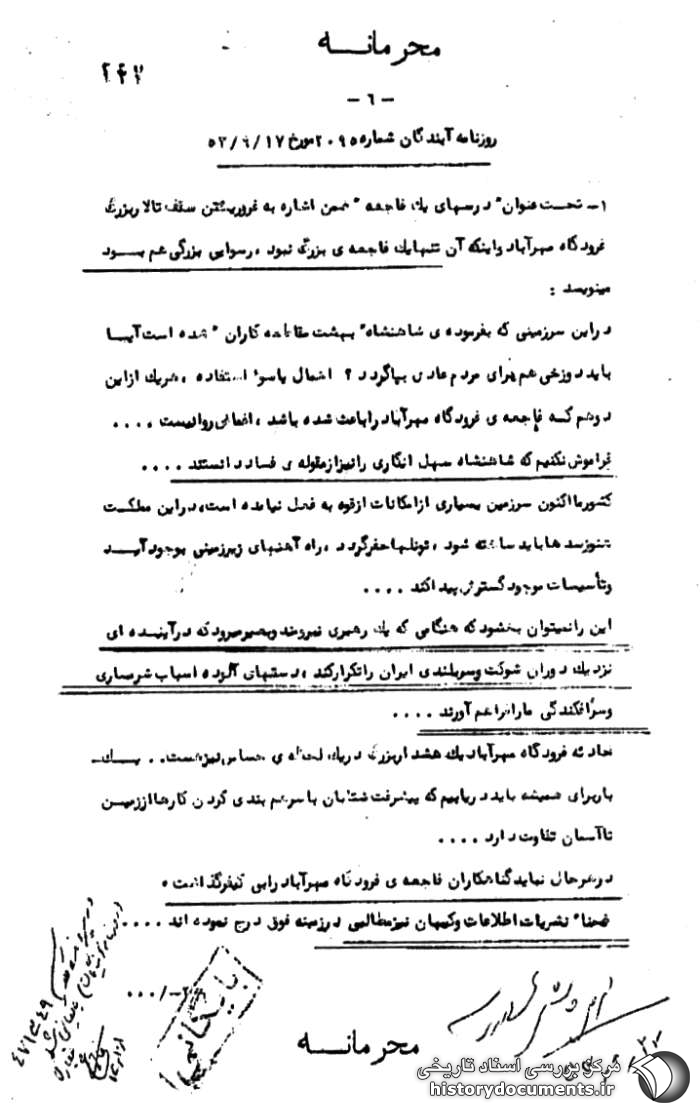 محرمانــه
۲۴۳
- ۶ -
روزنامه آیندگان شماره ۲۰۹۵ مورخ ۵۳/۹/۱۷
۱- تحت عنوان" درسهای یك فاجعه " ضمن اشاره به فروریختن سقف تالار بزرگ
فرودگاه مهرآباد و اینکه آن تنها یك فاجعه ی بزرگ نبود ، رسوایی بزرگی هم بود
مینویسد :
در این سرزمینی که بفرموده ی شاهنشاه" بهشت مقاطعه کاران " شده است آیا
باید دوزخی هم برای مردم عادی بپا گردد ؟ اهمال یا سوء استفاده ، هریك از این
دو هم که فاجعه ی فرودگاه مهرآباد را باعث شده باشد ، اغماض روا نیست ....
فراموش نکنیم که شاهنشاه سهل انگاری را نیز از مقوله ی فساد دانستند ....
کشور ما اکنون سرزمین بسیاری از امکانات از قوه به فعل نیامده است، در این مملکت
هنوز سدها باید ساخته شود ، تونلها حفر گردد ، راه آهنهای زیرزمینی بوجود آید
و تأسیسات موجود گسترش پیدا کند ....
این را نمیتوان بخشود که هنگامی که یك رهبری نیرومند و بصیر میرود که در آینده ای
نزدیك دوران شوکت و سربلندی ایران را تکرار کند ، دستهای آلوده اسباب شرمساری
و سرافکندگی ما را فراهم آورند ....
حادثه فرودگاه مهرآباد یك هشدار بزرگ در یك لحظه ی حساس نیز هست .. یــك
بار برای همیشه باید دریابیم که پیشرفت شتابان با سرهم بندی کردن کارها از زمین
تا آسمان تفاوت دارد ....
در هر حال نباید گناهکاران فاجعه ی فرودگاه مهرآباد را بی کیفر گذاشت .
ضمنا" نشریات اطلاعات و کیهان نیز مطالبی در زمینه فوق درج نموده اند ....
بایگانی
محرمانــه
مرکز بررسی اسناد تاریخی
historydocuments.ir